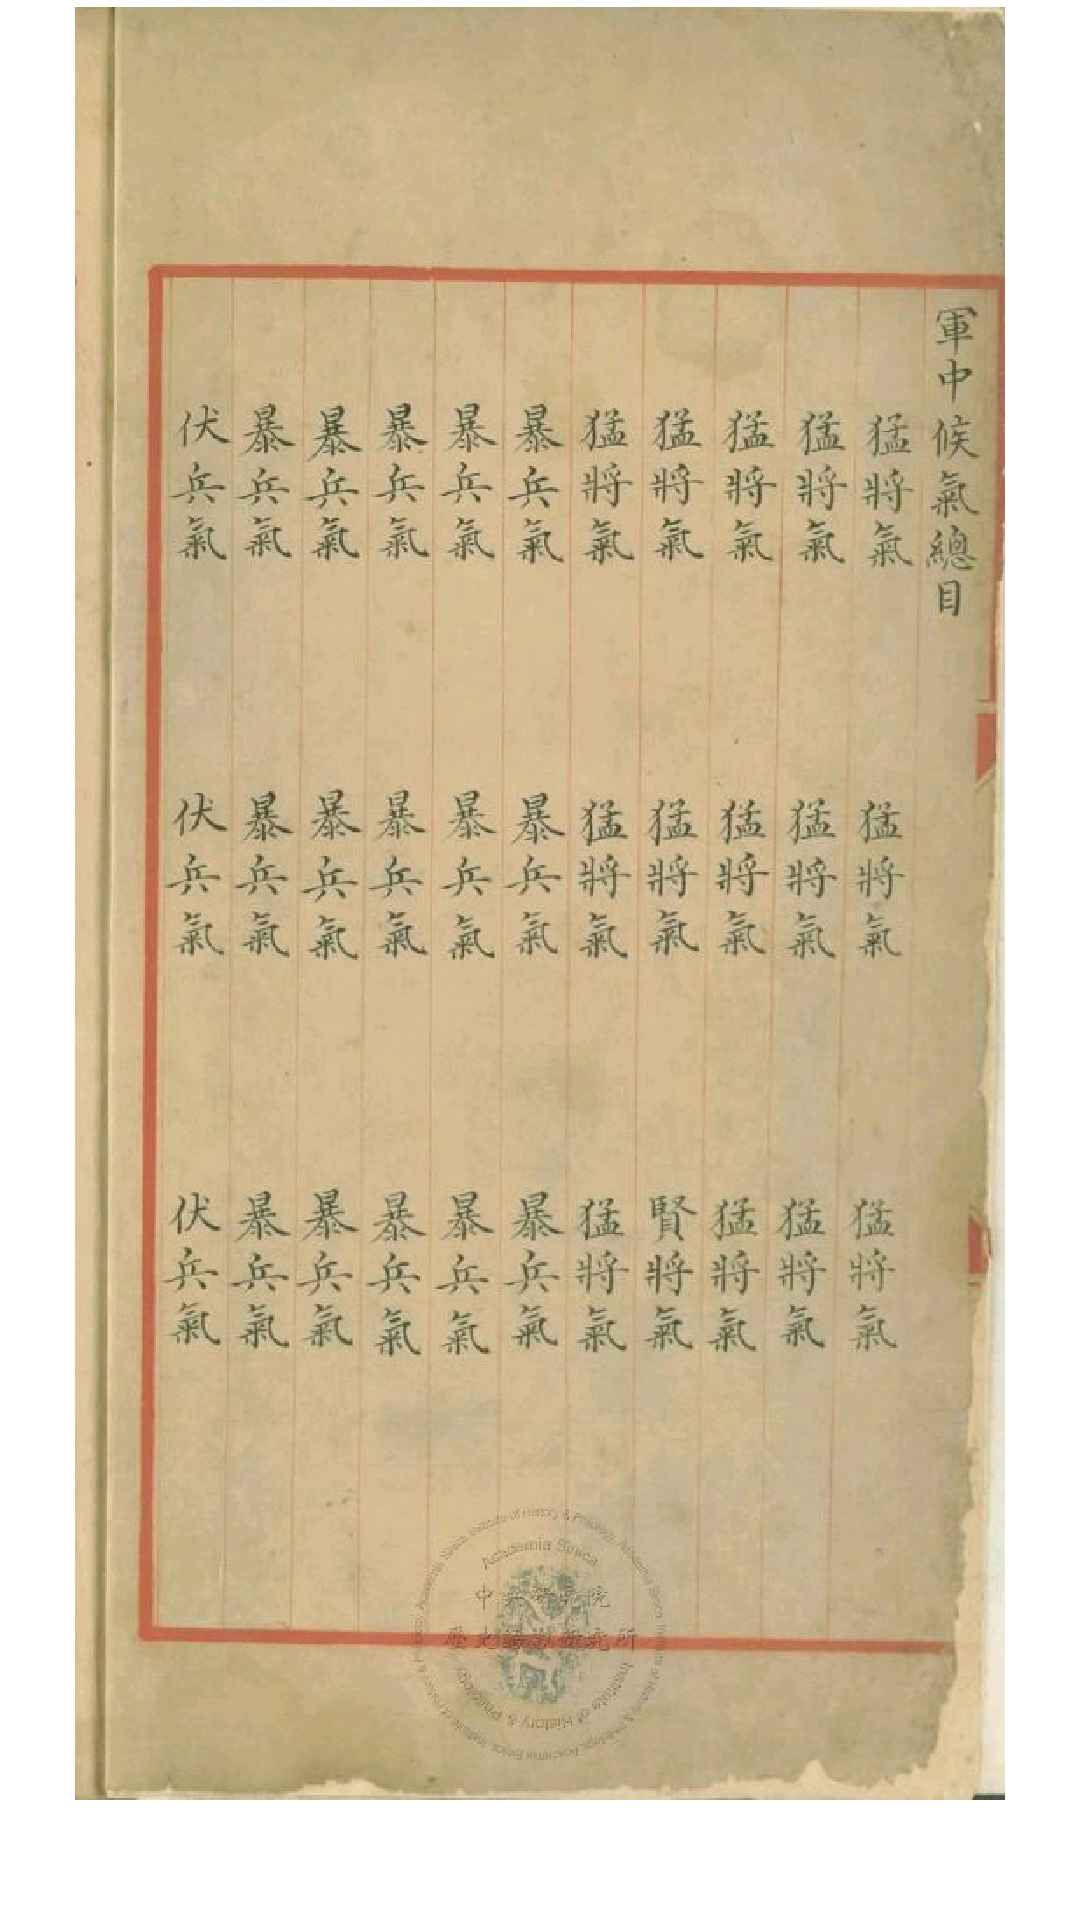 軍中候氣總目
猛將氣 猛將氣 猛將氣
猛將氣 猛將氣 猛將氣
猛將氣 猛將氣 猛將氣
猛將氣 猛將氣 賢將氣
猛將氣 猛將氣 猛將氣
暴兵氣 暴兵氣 暴兵氣
暴兵氣 暴兵氣 暴兵氣
暴兵氣 暴兵氣 暴兵氣
暴兵氣 暴兵氣 暴兵氣
暴兵氣 暴兵氣 暴兵氣
伏兵氣 伏兵氣 伏兵氣
Academia Sinica
Institute of History & Philology